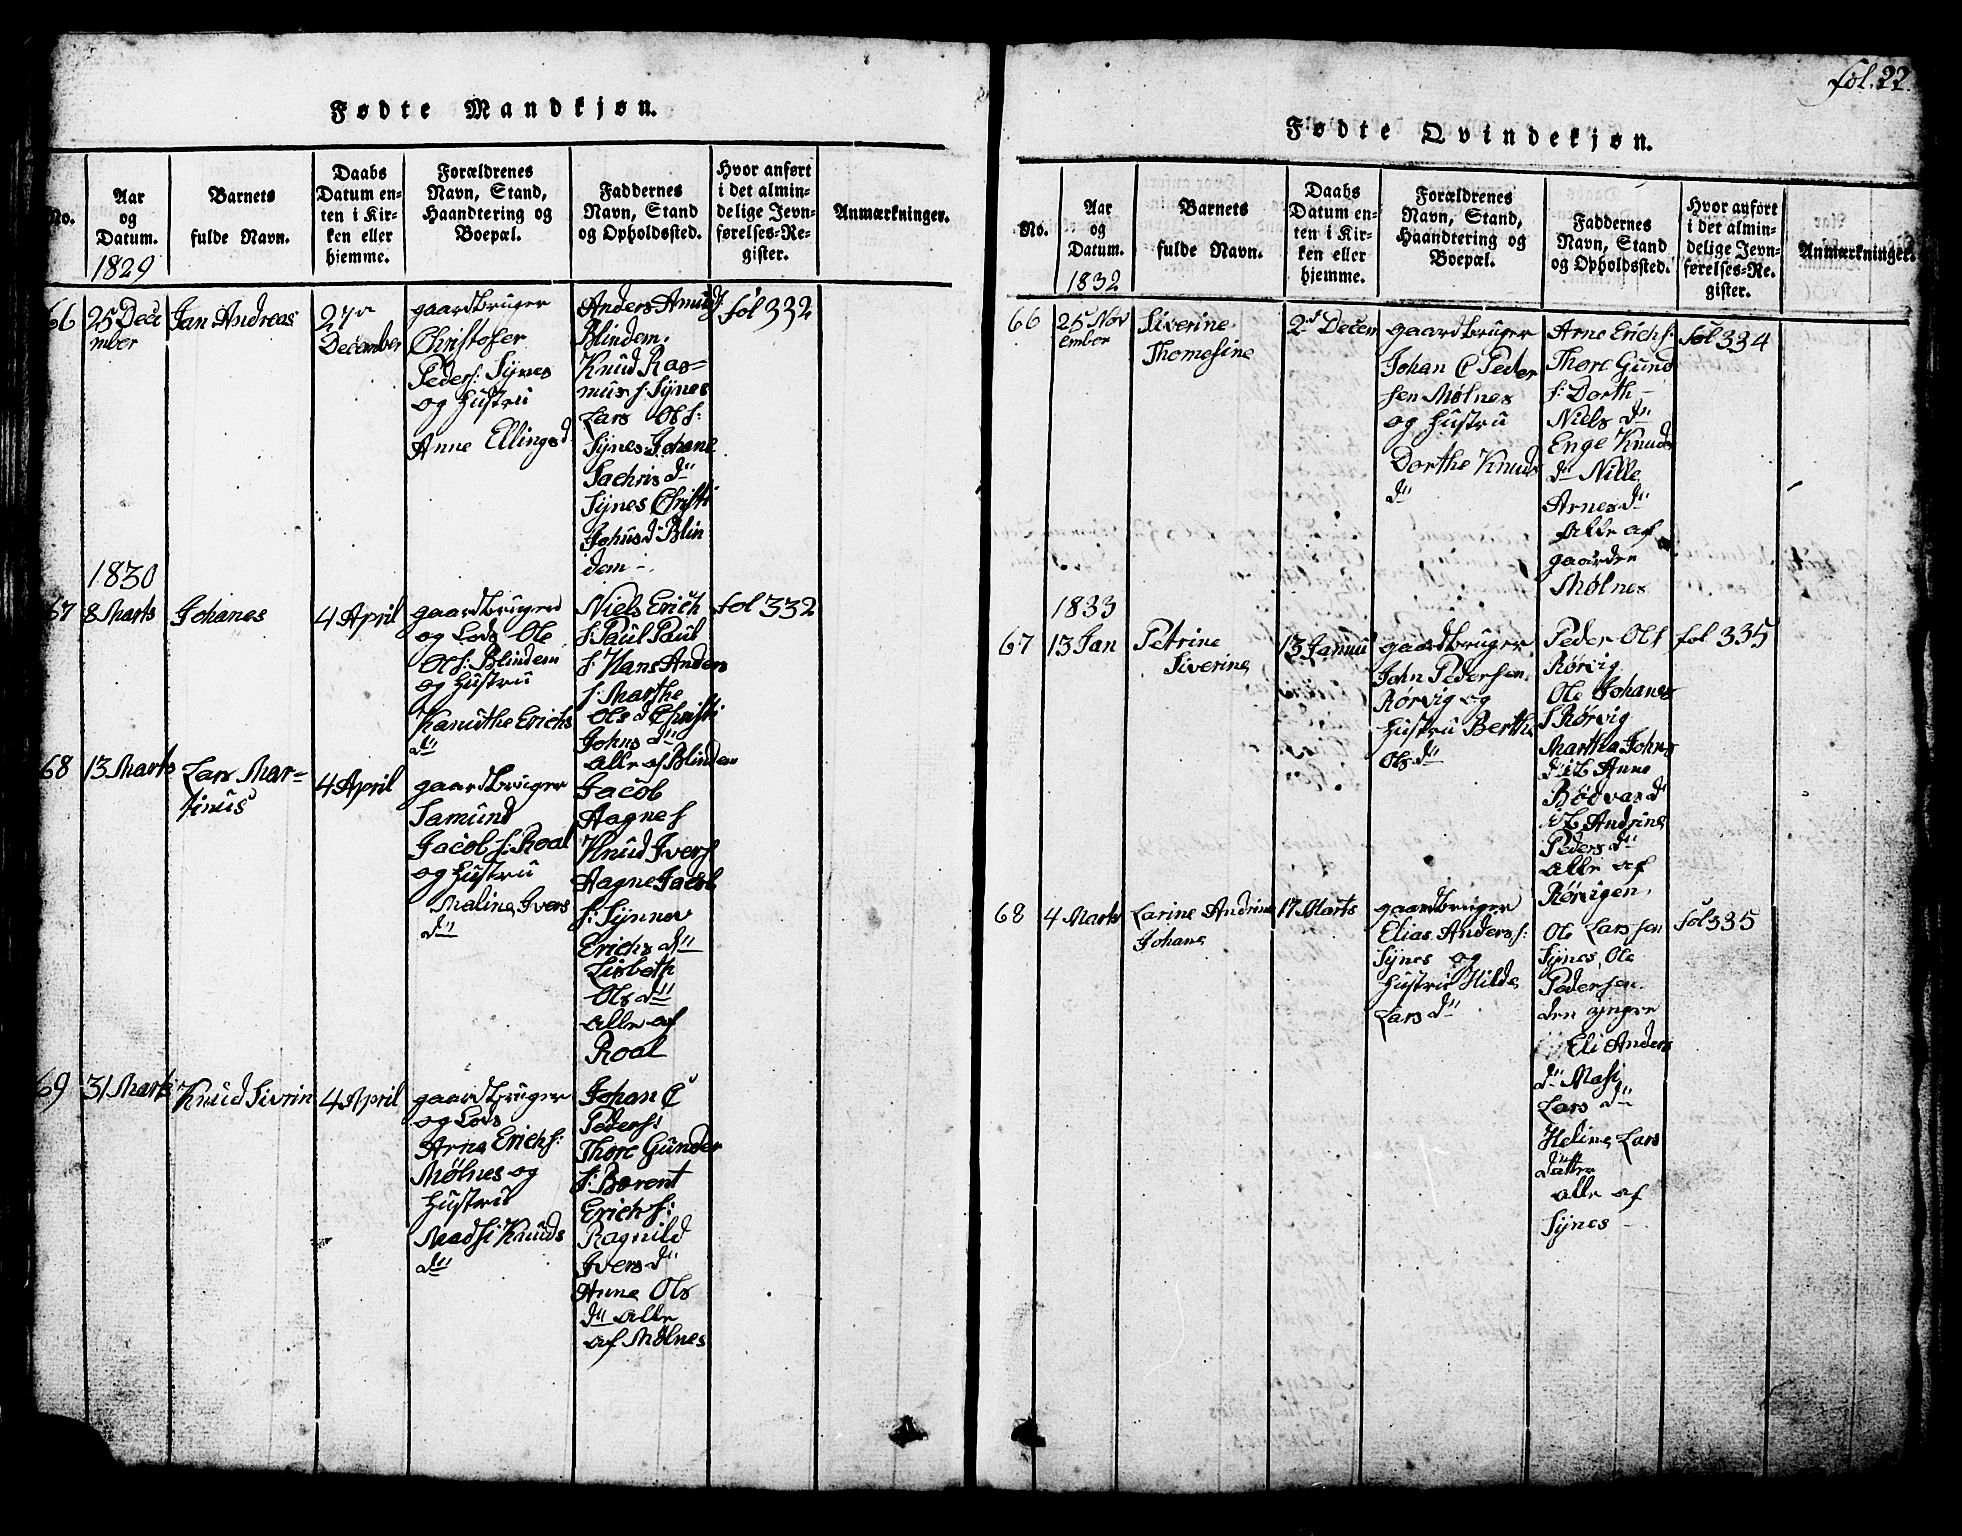 fol. 22.
Fødte Mandkjøn.
No.
Aar
og
Datum.
1829
Barnets
fulde Navn.
Daabs
Datum en-
ten i Kir-
ken eller
hjemme.
Forældrenes
Navn, Stand,
Haandtering og
Boepæl.
Faddernes
Navn, Stand
og Opholdssted.
Hvor anført
i det almin-
delige Jevn-
førelses-Re-
gister.
Anmærkninger.
66
25 Dece
mber
Jan Andreas
27de
December
gaardbruger
Christofer
Peders: Sÿnes
og Hustru
Anne Ellingsd
Anders Amunds:
Blindem.
Knud Ras-
mus s. Sÿnes
Lars Ols s:
Sÿnes Johane
Sachris dtr
Sÿnes Christi
Johnsd Blin
dem -
fol 332
1830
67
8 Marts
Johanes
4 April
gaardbruger
og Lods Ole
Ols s: Blindem
og Hustru
Kanuthe Erichs
dtr
Niels Erich
s: Paul Paul
s: Hans Anders
s. Marthe
Ols d Christi
Johns dtr
alle af Blindem
fol 332
68
13 Marts
Lars Mar-
tinus
4 April
gaardbruger
Samund
Jacob s: Roal
og Hustru
Maline Ivers
dtr
Jacob
Aagne s
Knud Ivers
Aagne Jacob
s: Sÿnnev
Erichs dtr
Lisbeth
Ols dtr
alle af
Roal
69
31 Marts
Knud Sivrin
4 April
gaardbruger
og Lods
Arne Erich s:
Mølnes og
Hustru
Madsi Knuds
dtr
Johan C
Peders:
Thore Gunder
s: Barent
Erich s:
Ragnild
Ivers dtr
Anne Ols
dtr alle
af Mølnes
Fødte Qvindekjøn.
No.
Aar
og
Datum.
1832
Barnets
fulde Navn.
Daabs
Datum en-
ten i Kir-
ken eller
hjemme.
Forældrenes
Navn, Stand,
Haandtering og
Boepæl.
Faddernes
Navn, Stand
og Opholdssted.
Hvor anført
i det almin-
delige Jevn-
førelses-Re-
gister.
Anmærkninger.
66
25 Nov
ember
Siverine
Thomesine
2d Decem
gaardbruger
Johan C Peder
sen Mølnes
og Hustru
Dorthe Knuds
dtr
Arne Erichs:
Thore Gund
s: Dorth-
Niels dtr
Enge Knuds
dtr Nille
Arnes dtr
Alle af
gaarden
Mølnes
fol 334
1833
67
13 Jan
Petrine
Siverine
13 Januu
gaardbruger
John Pedersen
Rørvig og
Hustru Berthe
Ols dtr
Peder Ols
Rørvig
Ole Johanes
s Rørvig
Martha Johns
dtr ib Anne
Bødvars dtr
ib Andrine
Peders dtr
alle af
Rørvigen.
fol 335
68
4 Marts
Larine Andrine
Johane
17 Marts
gaardbruger
Elias Anders s:
Sÿnes og
Hustru Hilde
Lars dtr
Ole Larssen
Sÿnes, Ole
Pedersen
den ÿngre
Eli Anders
dtr Masi
Lars dtr
Heline Lars
datter
alle af
Sÿnes -
fol 335